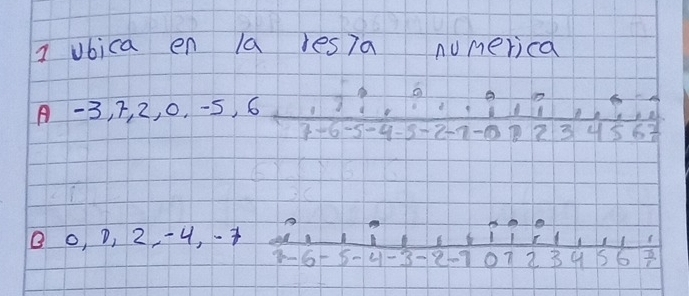 1 Ubica en la resta numerica
A -3, 7, 2, 0, -5, 6
7-6-5-4-3-2-1-0 1 2 3 4 5 6 7
B 0, 1, 2, -4, -7
7-6-5-4-3-2-1 0 1 2 3 4 5 6 7